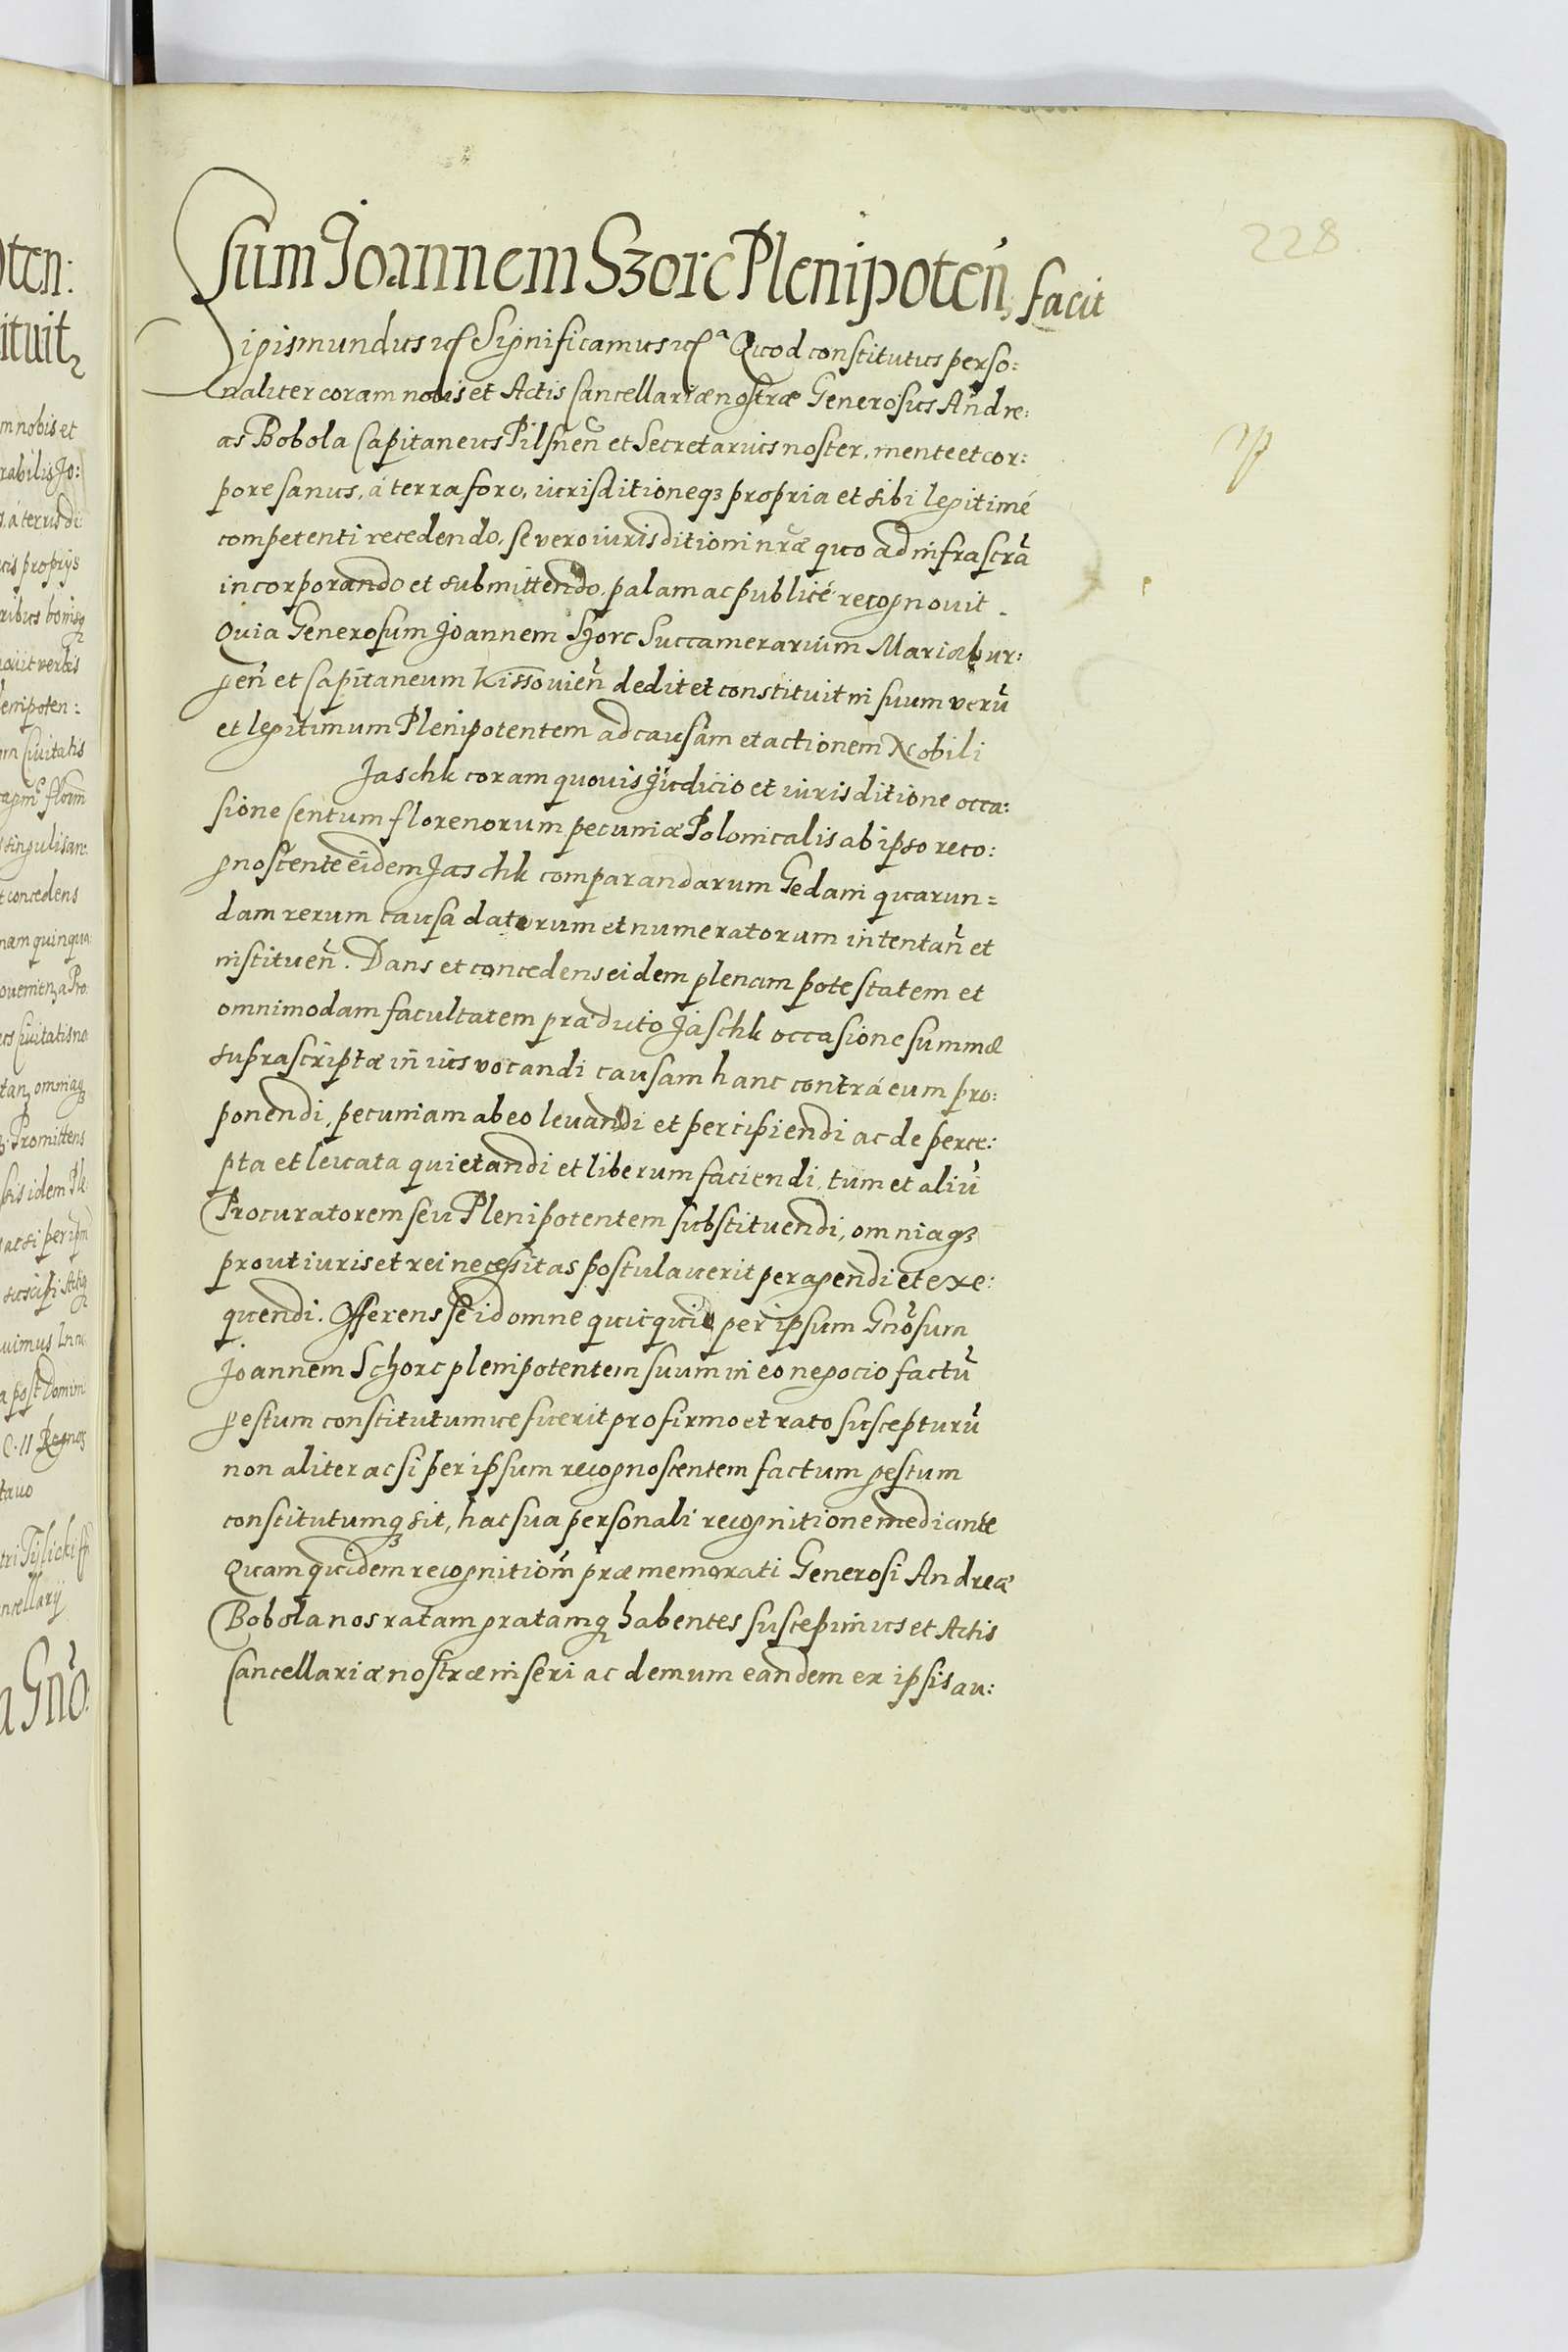 228
sum Joannem Szorc Plenipoteñ facit
Sigismundus etc Significamus etcª Quod constitutus perso:
naliter coram nobis et Actis Cancellariæ nostræ Generosus Andre:
as Bobola Capitaneus Pilsneñ et Secretarius noster, mente et cor:
pore sanus, á terra foro, iurisditioneqȝ propria et sibi legitimé
competenti recedendo, se vero iurisditioni nr̃æ quo ad infrascr̃a
incorporando et submittendo, palam ac publicé recognouit.
Quia Generosum Joannem Szorc Succamerarium Mariæbur:
geñ et Capitaneum Kissouieñ dedit et constituit in suum verũ
et legitimum Plenipotentem ad causam et actionem Nobili
Jaschk coram quouis Judicio et iurisditione occa:
sione Centum florenorum pecuniæ Polonicalis ab ipso reco:
gnoscente eidem Jaschk comparandarum Gedani quarun=
dam rerum causa datorum et numeratorum intentañ et
institueñ. Dans et concedens eidem plenam potestatem et
omnimodam facultatem prædicto Jaschk occasione summæ
suprascriptæ in ius vocandi causam hanc contrá eum pro:
ponendi, pecuniam ab eo leuandi et percipiendi ac de perce:
pta et leuata quietandi et liberum faciendi, tum et aliũ
Procuratorem seu Plenipotentem substituendi, omniaqȝ
prout iuris et rei necessitas postulauerit peragendi et exe:
quendi. Offerens se id omne quicquid per ipsum Gnõsum
Joannem Schorc plenipotentem suum in eo negocio factũ
gestum constitutumue fuerit pro firmo et rato suscepturũ
non aliter ac si per ipsum recognoscentem factum gestum
constitutumqȝ sit, hac sua personali recognitione mediante
Quam quidem recognitioñ præmemorati Generosi Andreæ
Bobola nos ratam gratamqȝ habentes suscepimus et Actis
Cancellariæ nostræ inseri ac demum eandem ex ipsis au: